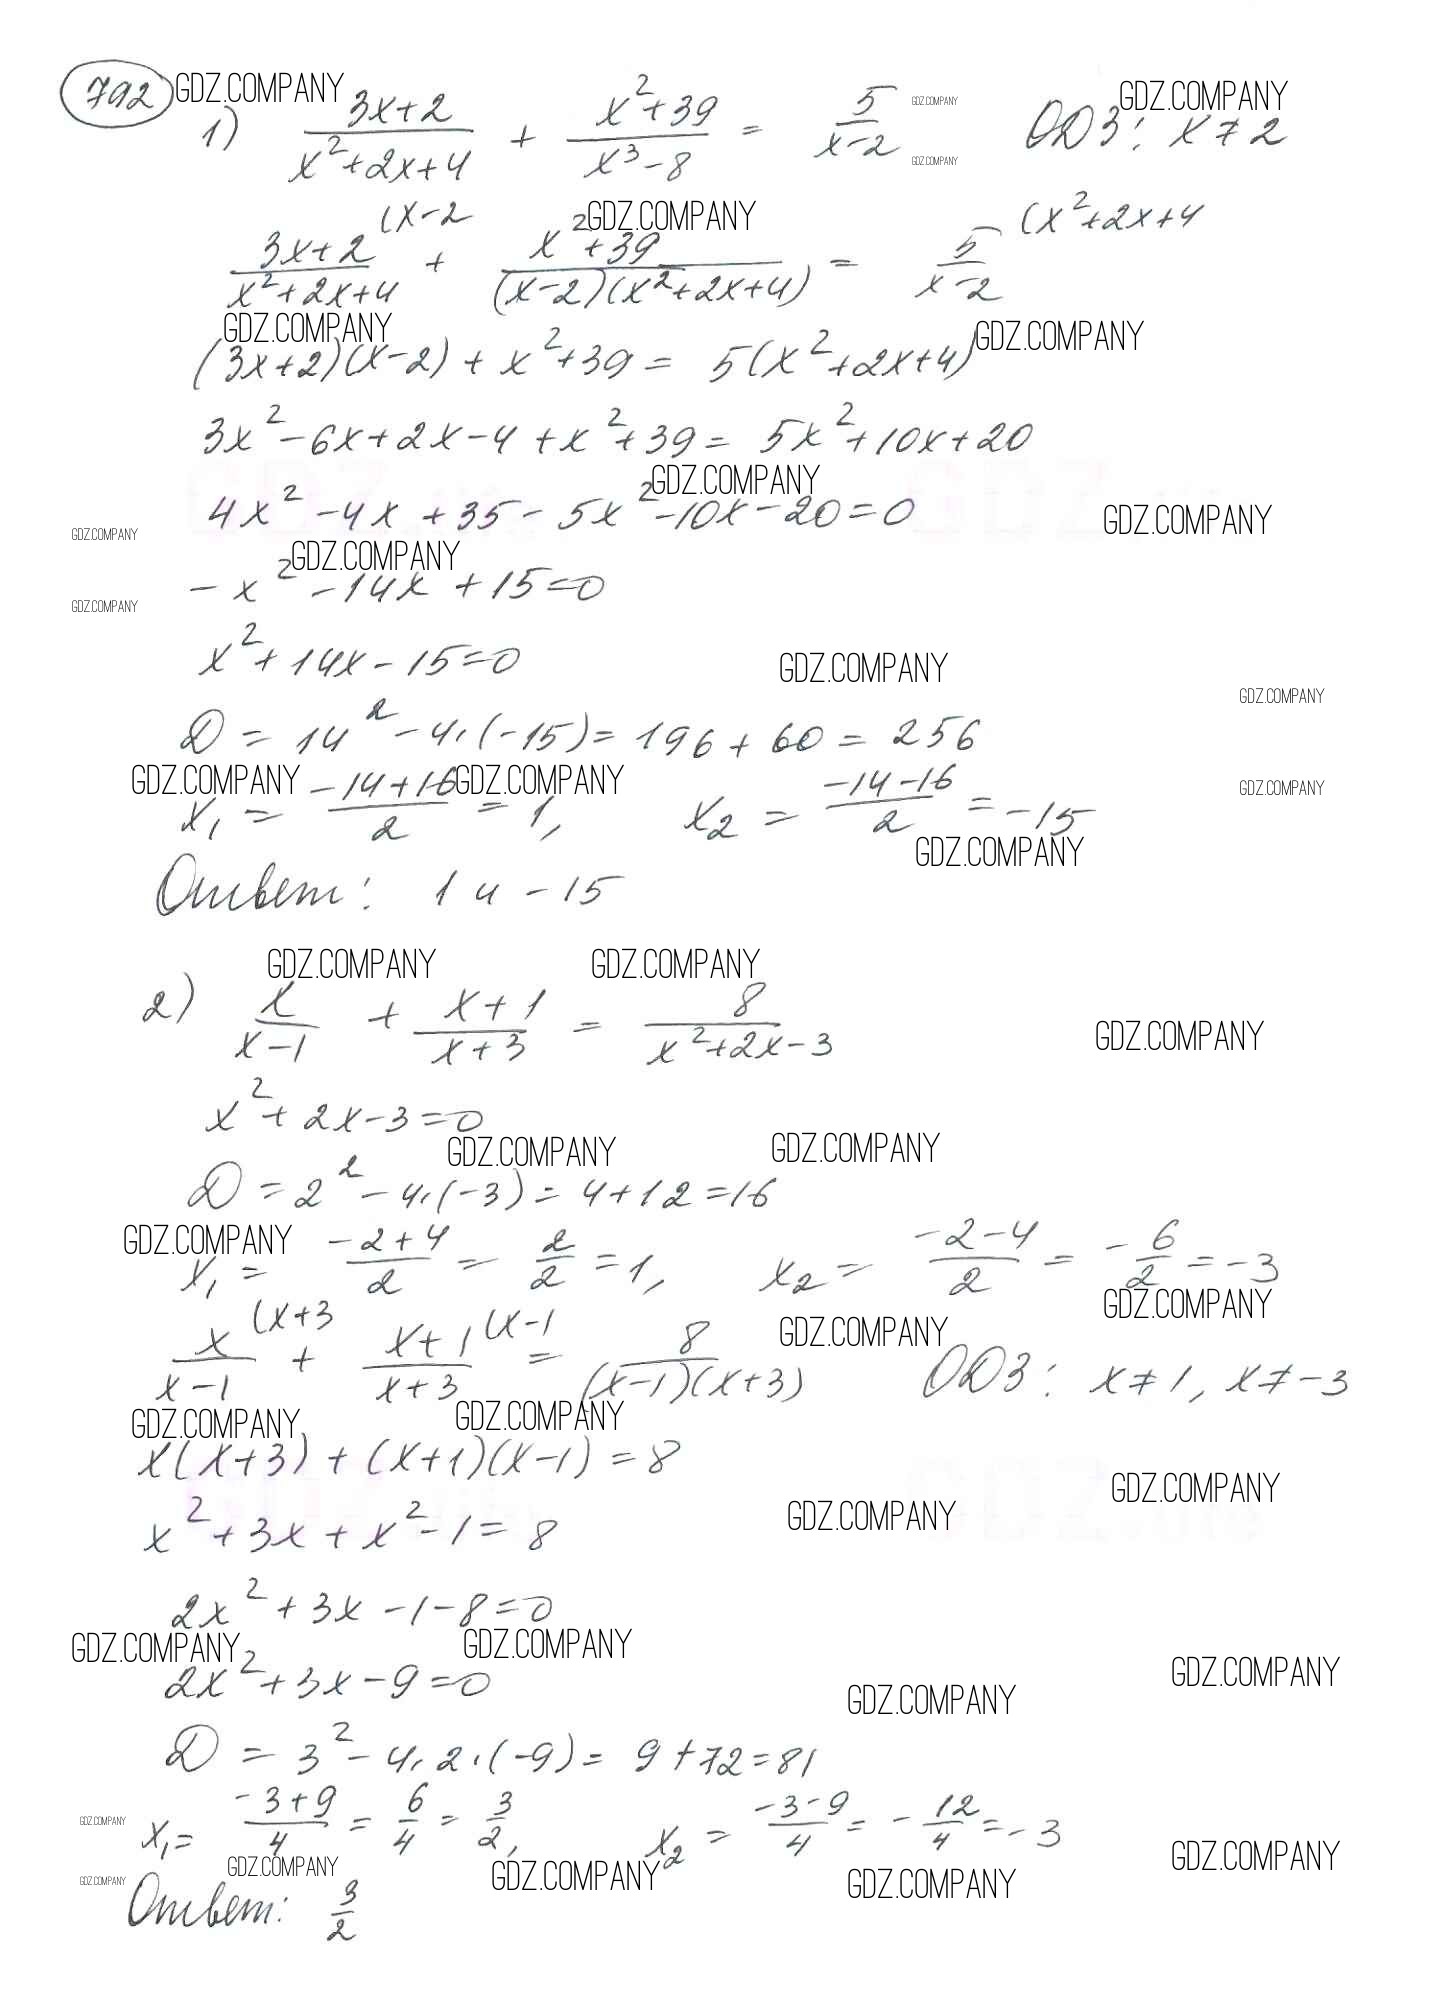 792 GDZ.COMPANY
1) (3x+2)/(x²+2x+4) + (x²+39)/(x³-8) = 5/(x-2) GDZ.COMPANY GDZ.COMPANY ОДЗ: x≠2 GDZ.COMPANY
GDZ.COMPANY
(3x+2)/(x²+2x+4) (x-2 + (x²+39)/((x-2)(x²+2x+4)) = 5/(x-2) (x²+2x+4
GDZ.COMPANY GDZ.COMPANY
(3x+2)(x-2) + x²+39 = 5(x²+2x+4)
3x²-6x+2x-4+x²+39 = 5x²+10x+20
GDZ.COMPANY
4x²-4x+35-5x²-10x-20=0 GDZ.COMPANY
GDZ.COMPANY GDZ.COMPANY
-x²-14x+15=0
GDZ.COMPANY
x²+14x-15=0 GDZ.COMPANY
GDZ.COMPANY
D = 14²-4·(-15) = 196+60 = 256
GDZ.COMPANY GDZ.COMPANY GDZ.COMPANY
x₁ = (-14+16)/2 = 1, x₂ = (-14-16)/2 = -15
GDZ.COMPANY
Ответ: 1 и -15
GDZ.COMPANY GDZ.COMPANY
2) x/(x-1) + (x+1)/(x+3) = 8/(x²+2x-3) GDZ.COMPANY
x²+2x-3=0
GDZ.COMPANY GDZ.COMPANY
D = 2²-4·(-3) = 4+12 = 16
GDZ.COMPANY
x₁ = (-2+4)/2 = 2/2 = 1, x₂ = (-2-4)/2 = -6/2 = -3
GDZ.COMPANY GDZ.COMPANY
x/(x-1) (x+3 + (x+1)/(x+3) (x-1 = 8/((x-1)(x+3)) ОДЗ: x≠1, x≠-3
GDZ.COMPANY GDZ.COMPANY
x(x+3) + (x+1)(x-1) = 8
GDZ.COMPANY GDZ.COMPANY
x²+3x+x²-1 = 8
2x²+3x-1-8=0
GDZ.COMPANY GDZ.COMPANY GDZ.COMPANY
2x²+3x-9=0
GDZ.COMPANY
D = 3²-4·2·(-9) = 9+72 = 81
GDZ.COMPANY
x₁ = (-3+9)/4 = 6/4 = 3/2, x₂ = (-3-9)/4 = -12/4 = -3
GDZ.COMPANY GDZ.COMPANY GDZ.COMPANY GDZ.COMPANY GDZ.COMPANY
Ответ: 3/2